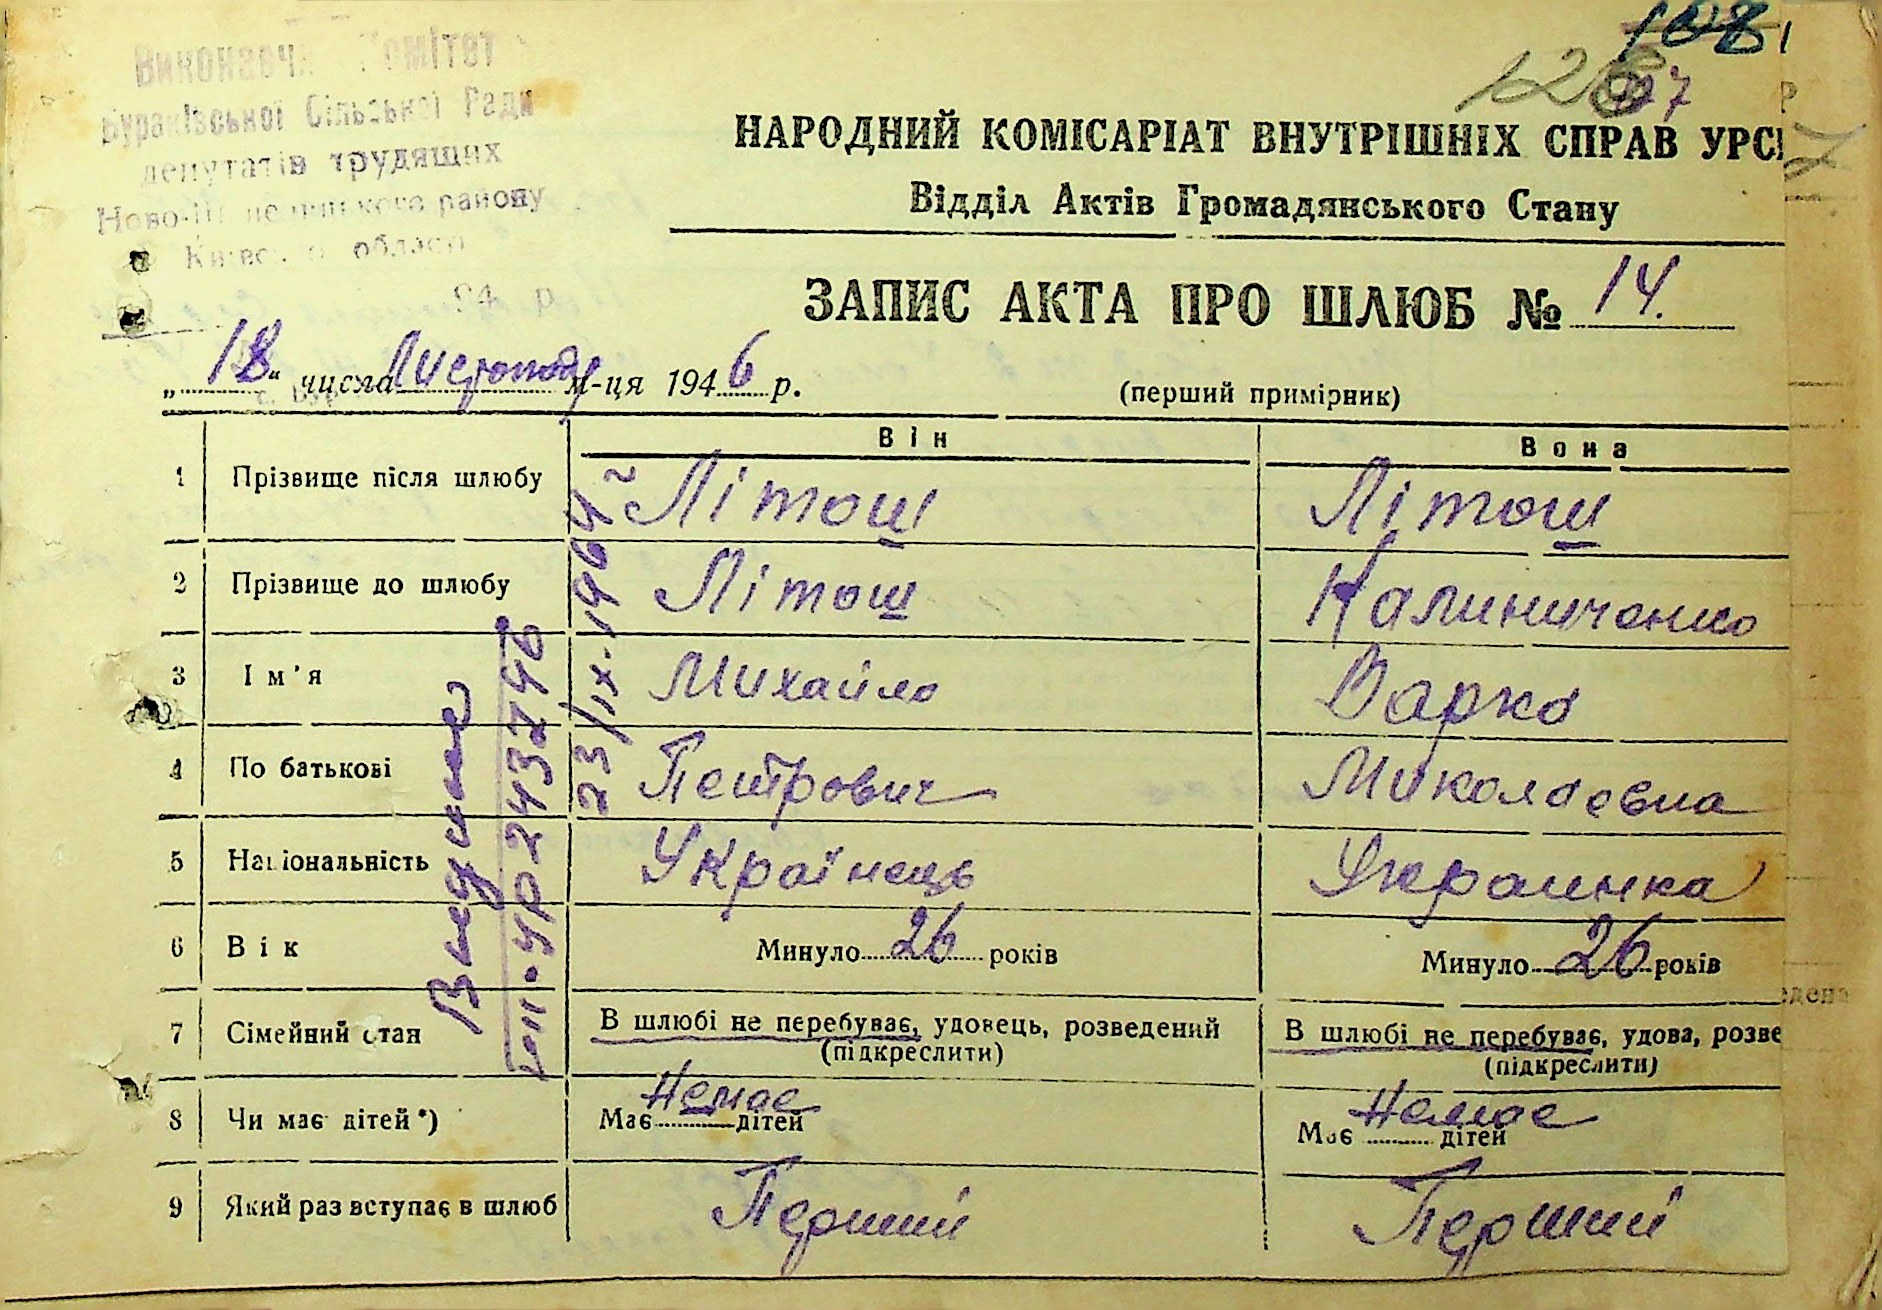 Виконавчий Комітет
Бураківської Сільської Ради
депутатів трудящих
району
Київської області
194 р.
108
128
127
НАРОДНИЙ КОМІСАРІАТ ВНУТРІШНІХ СПРАВ УРСР
Відділ Актів Громадянського Стану
ЗАПИС АКТА ПРО ШЛЮБ № 14.
„18" числа Листопада м-ця 1946 р.
(перший примірник)
Він Вона
1 Прізвище після шлюбу Літош Літош
2 Прізвище до шлюбу Літош Калиниченко
3 Ім'я Михайло Варка
4 По батькові Петрович Миколаєвна
5 Національність Українець Украинка
6 Вік Минуло 26 років Минуло 26 років
7 Сімейний стан В шлюбі не перебуває, удовець, розведений В шлюбі не перебуває, удова, розве
(підкреслити) (підкреслити)
8 Чи має дітей*) Має Немає дітей Має Немає дітей
9 Який раз вступає в шлюб Перший Перший
УР 243746
23/IX-1964 г
едена